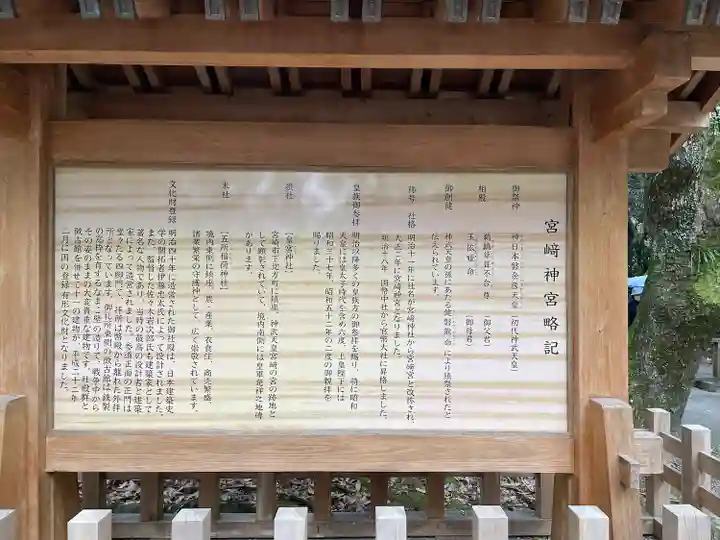 宮崎神宮略記
御祭神 神日本磐余彦天皇(初代神武天皇)
相殿 鵜鷀草葺不合尊(御父君)
玉依姫命(御母君)
御創建 神武天皇の孫にあたる健磐龍命により鎮祭されたと
伝えられています。
称号 社格 明治十一年に社名が宮崎神社から宮崎宮と改称され、
大正二年に宮崎神宮となりました。
明治十八年 国幣中社から官幣大社に昇格しました。
皇族御参拝 明治以降多くの皇族方の御参拝を賜り、特に昭和
天皇には皇太子時代を含め六度、上皇陛下には
昭和三十七年、昭和五十二年の二度の御親拝を
賜りました。
摂社 [皇宮神社]
宮崎市下北方町に鎮座、神武天皇宮崎の宮の跡地と
して顕彰されていて、境内南側には皇軍発祥之地碑
があります。
末社 [五所稲荷神社]
境内東側に鎮座、農・産業、衣食住、商売繁盛、
諸業繁栄の守護神として、広く崇敬されています。
文化財登録 明治四十年に造営された御社殿は、日本建築史
学の開拓者伊藤忠太氏によって設計されました。
また、監督した佐々木岩次郎氏も建築家として
著名な人物であり、当時の最高の設計者と建築
家によって造営されました。参道正面の正門は
堂々たる四脚門で、拝所は幣殿から離れた外拝
所となっています。御社殿東側の徴古館は鉄製
の窓枠を有するなまこ壁の造りで、戦争中から
その姿のままの大変貴重な建物です。社殿群と
徴古館を併せて十一の建物が、平成二十二年
二月に国の登録有形文化財となりました。